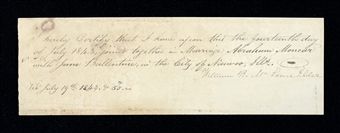 I hereby Certify that I have upon this the fourteenth day
of July 1843, joined together in Marriage Abraham
with Jane Ballantine, in the City of Nauvoo, Ills.
William
July 19th 1843